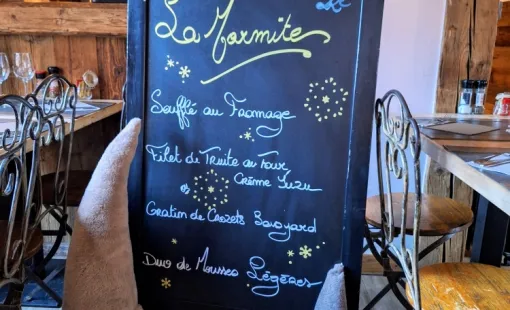 La Marmite
Soufflé au Fromage
Filet de Truite au Four
Crème Yuzu
Gratin de Crozets Savoyard
Duo de Mousses Légères